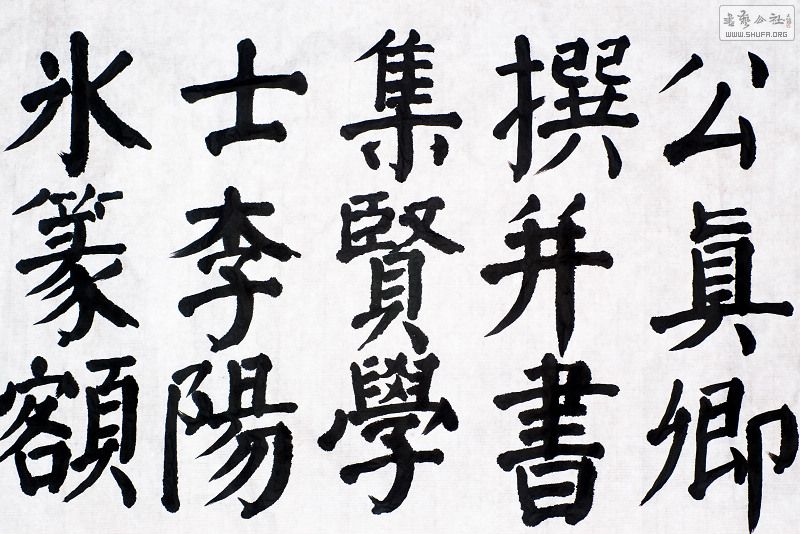 公真卿
撰并書
集賢學
士李陽
冰篆額
書藝公社
WWW.SHUFA.ORG